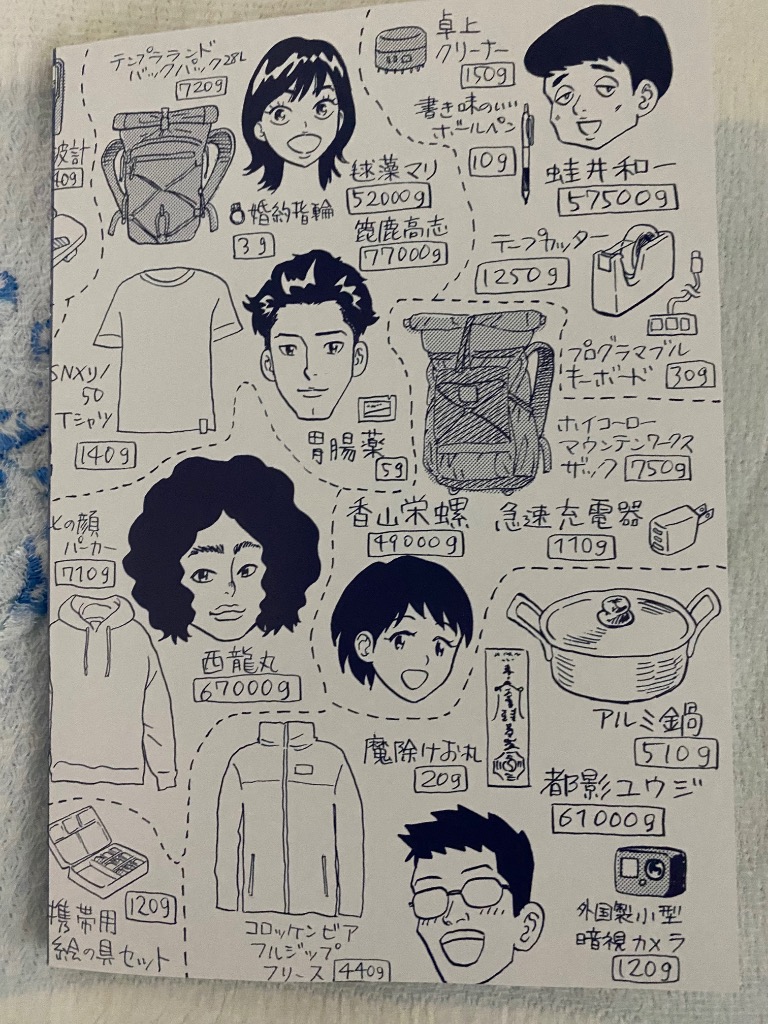 テンプラランド
バックパック28L
720g
卓上
クリーナー
150g
書き味のいい
ボールペン
10g
蛙井和一
57500g
毬藻マリ
52000g
婚約指輪
3g
箆鹿高志
77000g
波計
40g
テープカッター
1250g
プログラマブル
キーボード
30g
SNXリ/
50
Tシャツ
140g
胃腸薬
5g
ホイコーロー
マウンテンワークス
ザック
750g
香山栄螺
49000g
急速充電器
110g
の顔
パーカー
710g
西龍丸
67000g
アルミ鍋
510g
魔除けお札
20g
都影ユウジ
61000g
携帯用
絵の具セット
120g
コロッケンビア
フルジップ
フリース
440g
外国製小型
暗視カメラ
120g